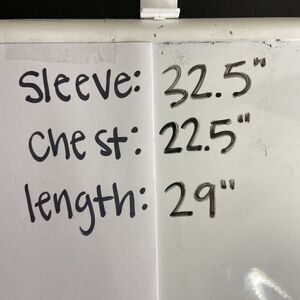 sleeve: 32.5"
chest: 22.5"
length: 29"